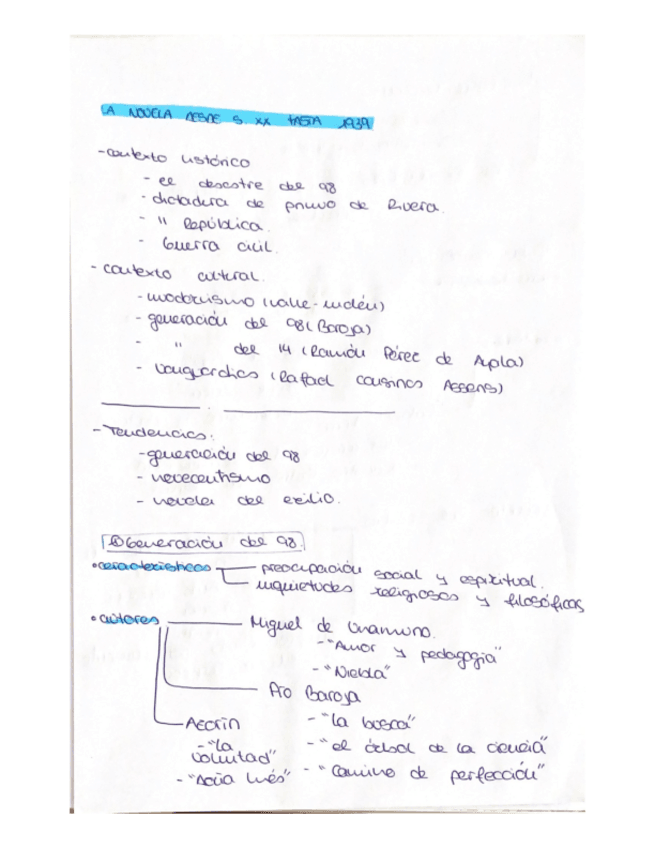 A NOVELA DESDE S. XX HASTA 1939
- contexto histórico
- el desastre del 98
- dictadura de primo de Rivera.
- II República.
- Guerra civil.
- contexto cultural.
- modernismo (valle-inclán)
- generación del 98 (Baroja)
- " del 14 (Ramón Pérez de Ayala)
- vanguardias (Rafael cansinos Assens)
- Tendencias:
- generación del 98
- novecentismo
- novela del exilio.
① Generación del 98.
• características
- preocupación social y espiritual.
- inquietudes religiosas y filosóficas
• autores
Miguel de Unamuno.
- "Amor y pedagogia"
- "Niebla"
Pío Baroja
- "la busca"
- "el árbol de la ciencia"
- "Camino de perfección"
Azorín
- "la voluntad"
- "Doña Inés"